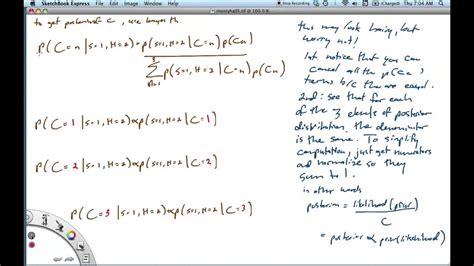 SketchBook Express File Edit Window Help
(Charged) Thu 7:04 AM
montyhall5.tif @ 100.0 %
to get posterior of C, use bayes th.
P(C=n|S=1,H=2) = p(S=1,H=2|C=n)p(Cn)
Σ p(S=1,H=2|C=n)p(Cn)
n=1
P(C=1|S=1,H=2)∝p(S=1,H=2|C=1)
P(C=2|S=1,H=2)∝p(S=1,H=2|C=2)
P(C=3|S=1,H=2)∝p(S=1,H=2|C=3)
this may look hairy, but
worry not!
1st notice that you can
cancel all the p(Cn)
terms b/c they are equal.
2nd: see that for each
of the 3 elements of posterior
distribution, the denominator
is the same. To simplify
computation, just get numerators
and normalize so they
sum to 1.
in other words
posterior = likelihood(prior)
C
= posterior ∝ prior(likelihood)